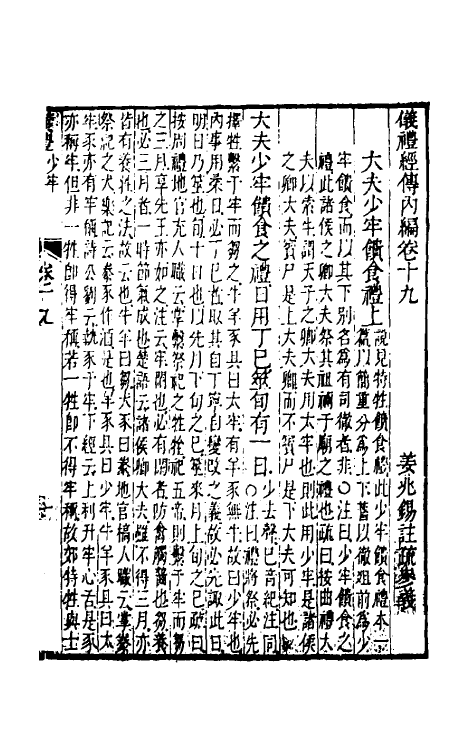 儀禮經傳內編卷十九　姜兆錫註疏參義
大夫少牢饋食禮上
說見特牲饋食禮此少牢饋食禮本一
篇以簡重分為上下舊以徹俎前為少
牢饋食而以其下別名為有司徹者非○注曰少牢饋食之
禮此諸侯之卿大夫祭其祖禰于廟之禮也疏曰按曲禮大
夫以索牛謂天子之卿大夫用太牢也則此用少牢是諸侯
之卿大夫賓尸是上大夫卿而不賓尸是下大夫可知也
大夫少牢饋食之禮日用丁巳筮旬有一日
少去聲巳音紀注同
○注曰禮將祭必先
擇牲繫于牢而芻之牛羊豕具曰太牢有羊豕無牛故曰少牢也
內事用柔日必丁巳者取其自丁寧自變改之義故必先諏此日
明日乃筮也旬十日也以先月下旬之巳筮來月上旬之巳疏曰
按周禮地官充人職云掌繫祭祀之牲牷祀五帝則繫于牢而芻
之三月享先王亦如之注云牢閑也必有閑者防禽獸觸齧也芻養
也必三月者一時節氣成也楚語云諸侯卿大夫雖不得三月亦
皆有養牲之法故云也牛羊曰芻犬豕曰豢地官槁人職云掌豢
祭祀之犬樂記云豢豕作酒是也羊豕具曰少牢牛羊豕具曰太
牢豕亦有牢稱詩公劉云執豕于牢下經云上利升牢心舌是豕
亦稱牢但非一牲即得牢稱若一牲即不得牢稱故郊特牲與士
儀禮少牢
卷十九